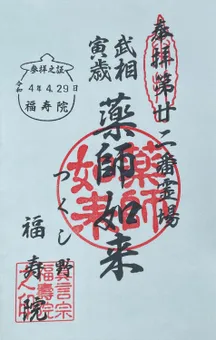 奉拝第廿二番霊場
武相
寅歳
薬師如来
つくし野
福寿院
薬師
如来
参拝之証
令和
4年4.29日
福寿院
真言宗
福壽院